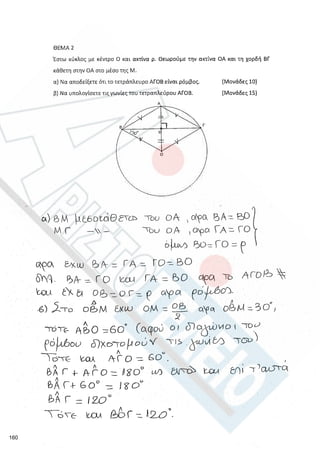 ΘΕΜΑ 2
Έστω κύκλος με κέντρο Ο και ακτίνα ρ. Θεωρούμε την ακτίνα ΟΑ και τη χορδή ΒΓ
κάθετη στην ΟΑ στο μέσο της Μ.
α) Να αποδείξετε ότι το τετράπλευρο ΑΓΟΒ είναι ρόμβος. (Μονάδες 10)
β) Να υπολογίσετε τις γωνίες του τετραπλεύρου ΑΓΟΒ. (Μονάδες 15)
Α
Β Γ
Ο
α) ΒΜ μεσοκάθετος του ΟΑ, άρα ΒΑ = ΒΟ
ΜΓ -//- του ΟΑ, άρα ΓΑ = ΓΟ
όμως ΒΟ = ΓΟ = ρ
άρα έχω ΒΑ = ΓΑ = ΓΟ = ΒΟ
δηλ. ΒΑ = ΓΟ και ΓΑ = ΒΟ άρα το ΑΓΟΒ #
και έχει ΟΒ = ΟΓ = ρ άρα ρόμβος
β) Στο ΟΒ̂Μ έχω ΟΜ = ΟΒ/2 άρα ΟΒ̂Μ = 30°,
τότε ΑΒ̂Ο = 60° (αφού οι διαγώνιοι του
ρόμβου διχοτομούν τις γωνίες του)
Τότε και ΑΓ̂Ο = 60°.
ΒΑ̂Γ + ΑΓ̂Ο = 180° ως εντός και επί τ'αυτά
ΒΑ̂Γ + 60° = 180°
ΒΑ̂Γ = 120°
Τότε και ΒΟ̂Γ = 120°.
160